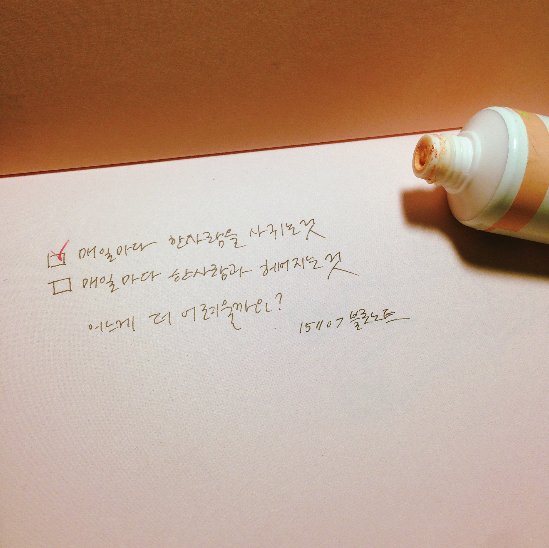 매일마다 한사람을 사귀는것
매일마다 한사람과 헤어지는것
어느게 더 어려울까요?
151107 블루노트